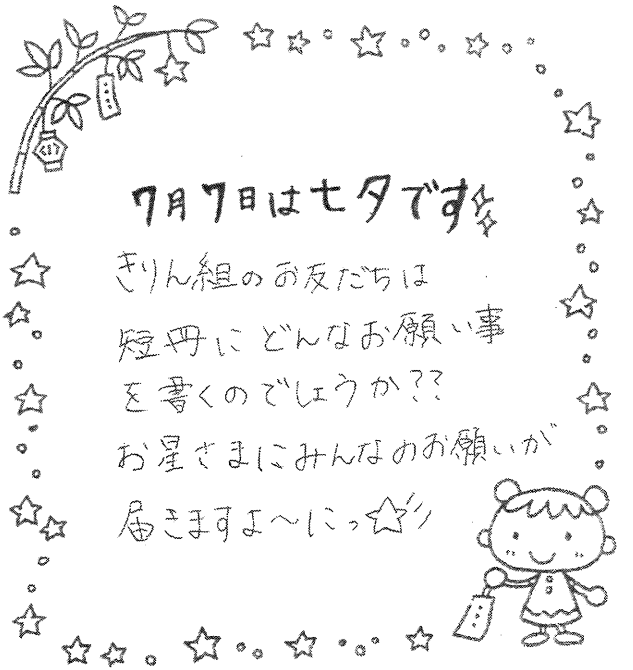 7月7日は七夕です
きりん組のお友だちは
短冊にどんなお願い事
を書くのでしょうか??
お星さまにみんなのお願いが
届きますよ〜にっ☆